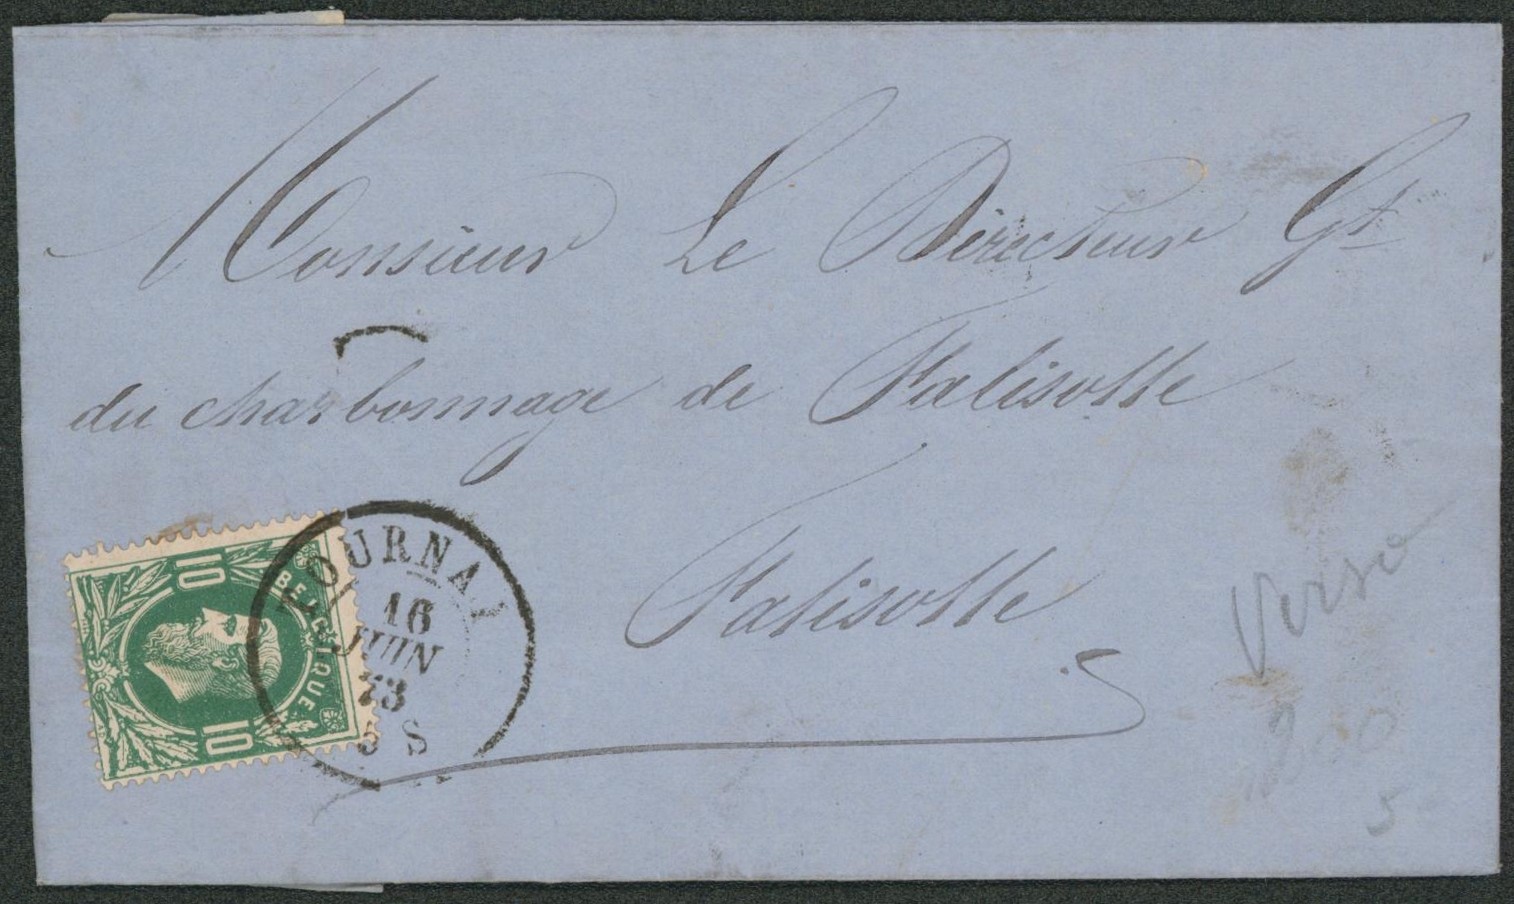 Monsieur Le Directeur Gt
du charbonnage de Falisolle
Falisolle
10
BELGIQUE
10
TOURNAI
16
JUIN
73
S
Verso
200
5